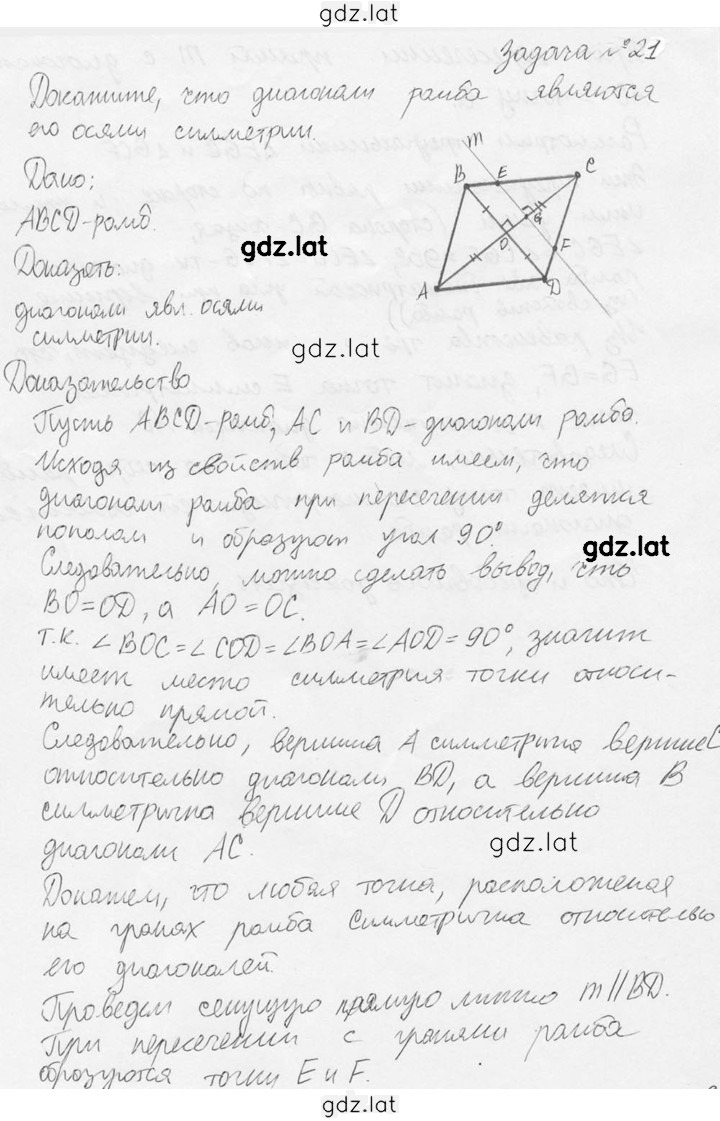 gdz.lat
Задача №21
Докажите, что диагонали ромба являются
его осями симметрии.
Дано:
ABCD-ромб.
gdz.lat
Доказать:
диагонали явл. осями
симметрии.
m
B E C
G
O
F
A D
gdz.lat
Доказательство
Пусть ABCD-ромб, AC и BD-диагонали ромба.
Исходя из свойств ромба имеем, что
диагонали ромба при пересечении делятся
пополам и образуют угол 90°.
gdz.lat
Следовательно, можно сделать вывод, что
BO=OD, а AO=OC.
т.к. ∠BOC=∠COD=∠BOA=∠AOD=90°, значит
имеет место симметрия точки относи-
тельно прямой.
Следовательно, вершина A симметрична вершине C
относительно диагонали BD, а вершина B
симметрична вершине D относительно
диагонали AC.
gdz.lat
Докажем, что любая точка, расположеная
на гранях ромба симметрична относительно
его диагоналей.
Проведем секущую прямую линию m||BD.
При пересечении с гранями ромба
образуются точки E и F.
gdz.lat